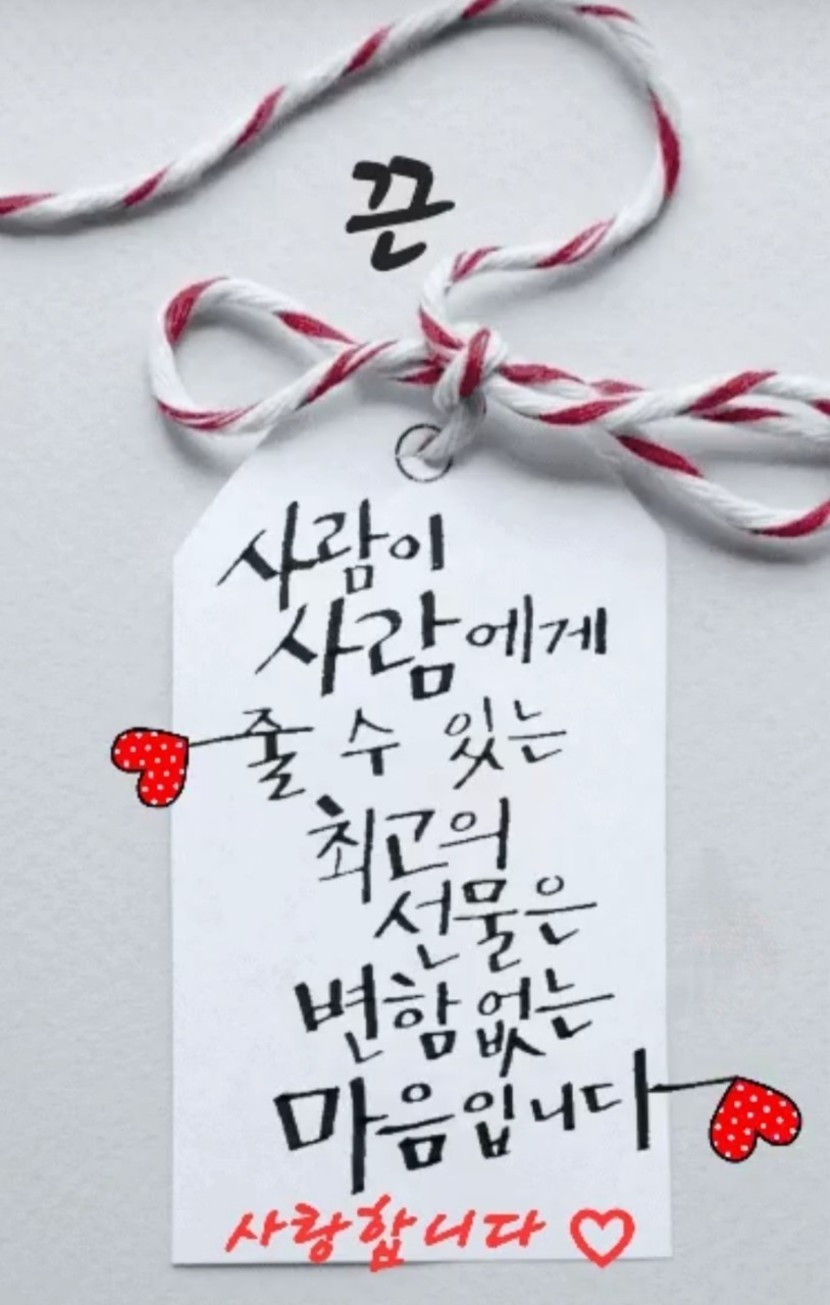 끈
사람이
사람에게
줄 수 있는
최고의
선물은
변함없는
마음입니다
사랑합니다 ♡